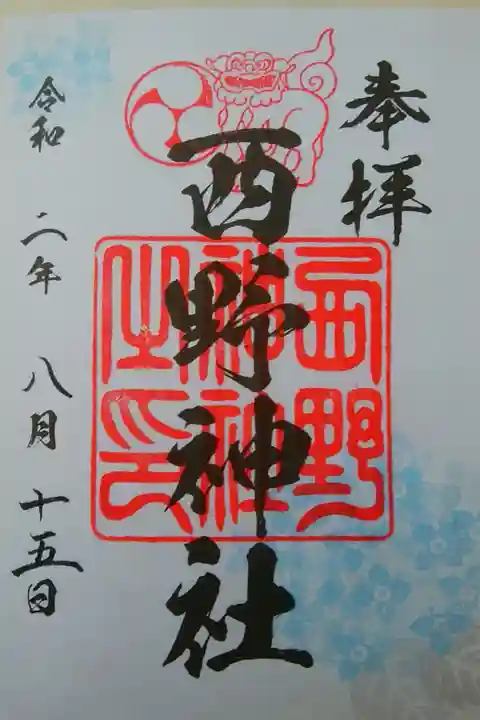 奉拝
西野神社
西野神社之印
令和 二年 八月 十五日